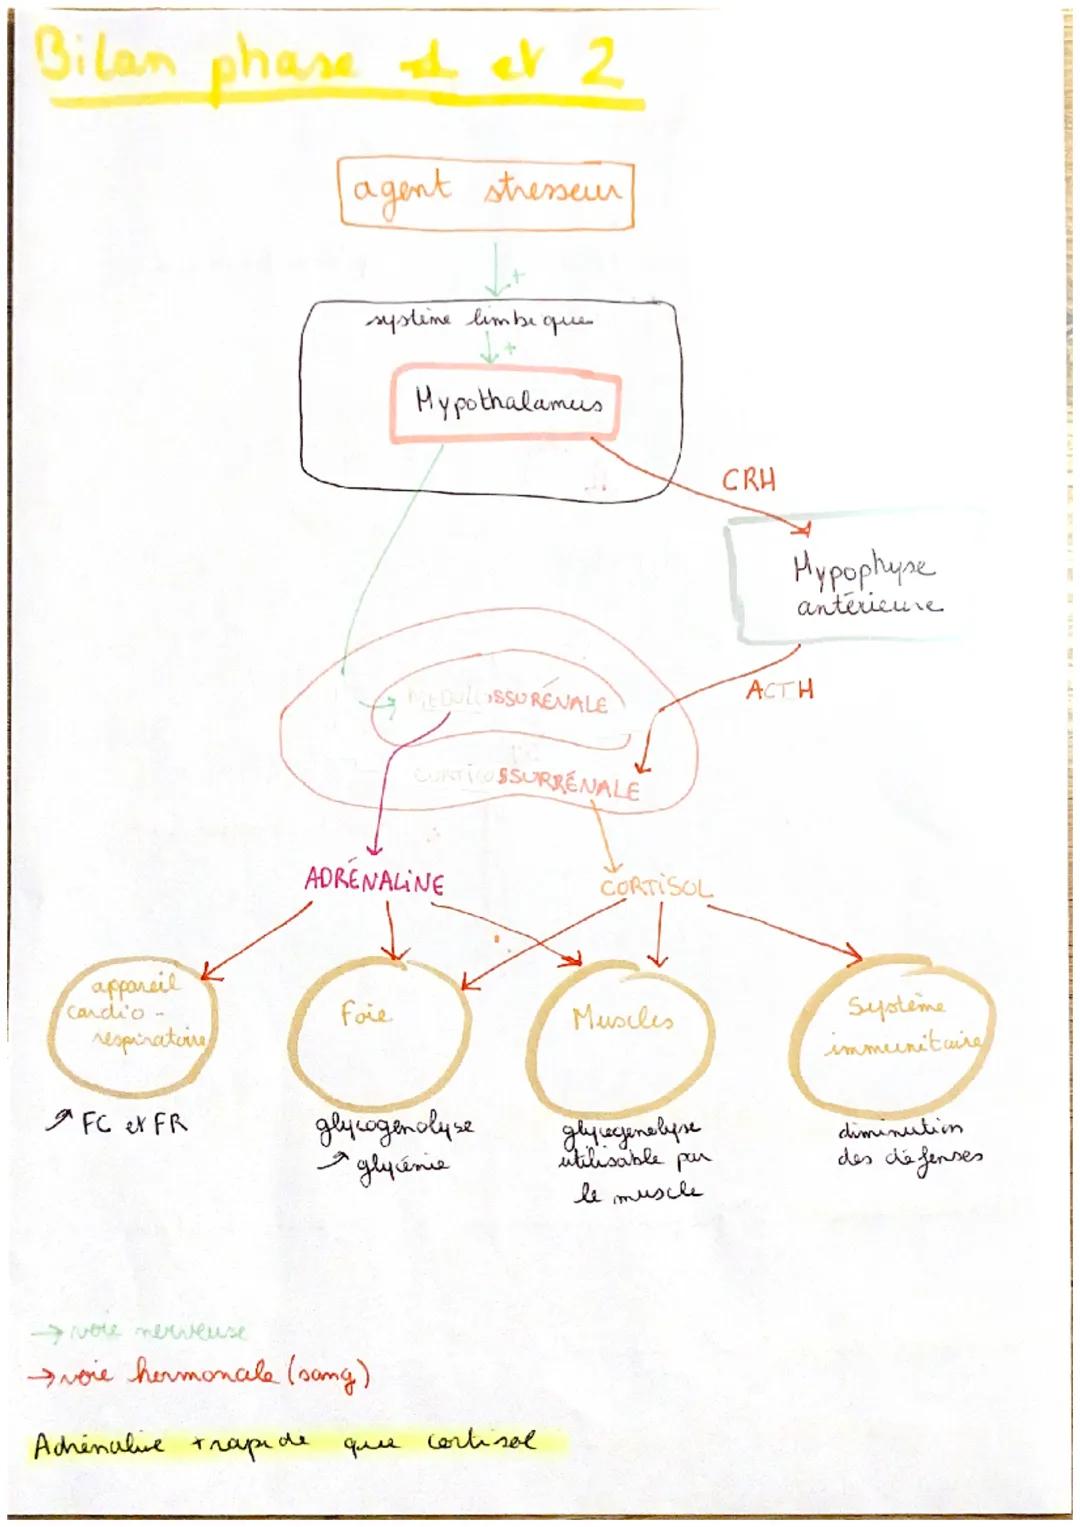 Bilan phase 1 et 2
agent stresseur
+
système limbique
+
Hypothalamus
CRH
Hypophyse
antérieure
ACTH
MÉDULLOSSURÉNALE
CORTICOSSURRÉNALE
ADRÉNALINE
CORTISOL
appareil
cardio-
respiratoire
Foie
Muscles
Système
immunitaire
↗ FC et FR
glycogenolyse
↗ glycémie
glycogenolyse
utilisable par
le muscle
diminution
des défenses
→ voie nerveuse
→ voie hormonale (sang)
Adrénaline + rapide que cortisol